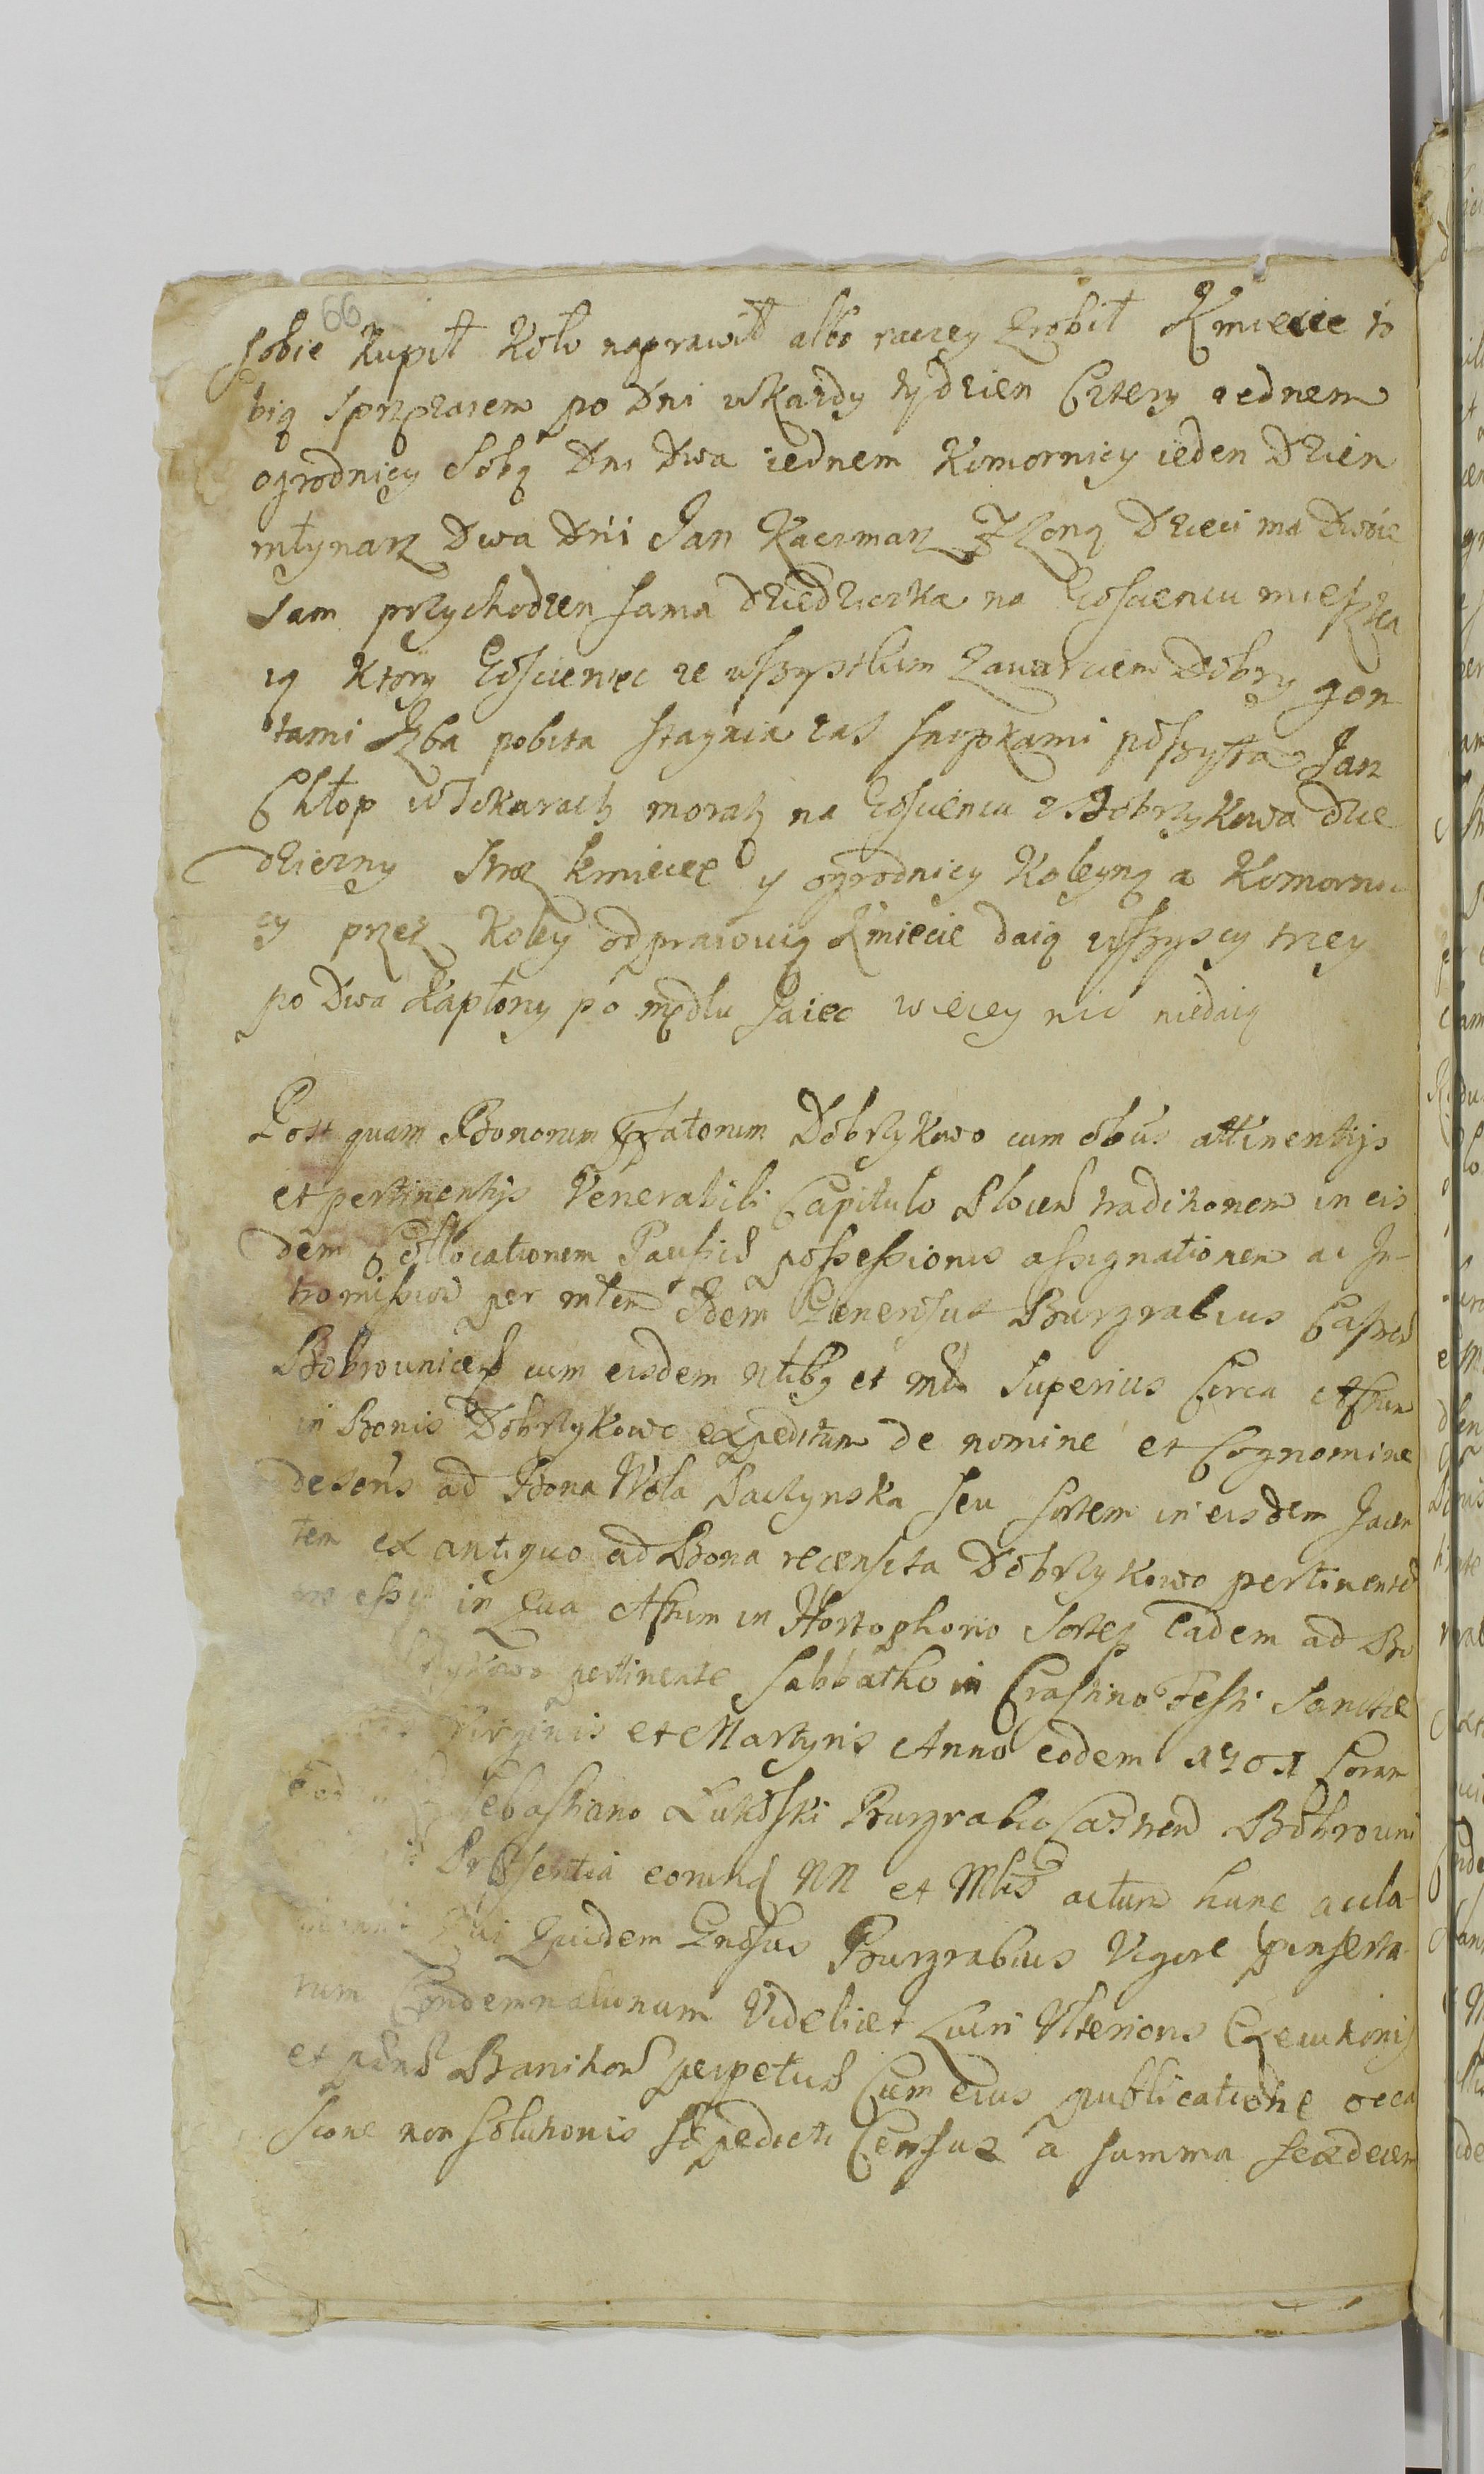 66
sobie kupił Koło naprawił albo raczey zrobił Kmiecie ro
bią sprzężaiem po Dni w Każdy tydzien Cztery iednem
ogrodnicy sobą Dni Dwa iednem Komornicy ieden Dzien
młynarz Dwa Dni Jan Kaczmarz Z Zoną Dzieci ma Dwoie
sam przychodzen sama dziedziczka na Gosciencu mieszka
ią Ktory Gosceniec ze wszystkim zawarciem Dobry gon
tami Izba pobita staynia zas snopkami poszyta Jan
Chłop w Tokarach na Gosciencu z Dobrzykowa dzie
dziczny Stroz kmiecie y ogrodnicy Koleyną a Komorni
cy przez Koley odprawuią Kmiecie daią wszyscy trzey
po Dwa Kapłony po mędlu Jaiec wiecey nic niedaią
Post quam Bonorum Dobrzykowo cum obus attinentijs
et pertinentijs Venerabili Capitulo Plocen traditionem in eis
dem Collocationem possessionis assignationem ac In-
tromission per mtem Idem Generosus Burgrabius Castren
Bobrounicen cum eisdem Nlibq et superius Circa Actum
in Bonis Dobrzykowo expeditum de nomine et Cognomine
ad Bona Wola Paczynska seu sortem in eisdem Jacen
tem ex antiquo ad Bona recensita Dobrzykowo pertinentem
in Qua Actum in Hortophorio sortis Eadem ad Bo
pertinente Sabbatho in Crastino Festi Sanctae
Virginis et Martyris Anno eodem 1701 Coram
Sebastiano Lukoski Burgrabio Castren Bobrouni
Prsentia eorund NN et Mlis actum hunc accla-
Quidem Gnosus Burgrabius Vigore
rum Condemnationum Videlicet Lucri Ulterioris Executionis
et Banition perpetuae Cum eius publicatione occa
sione non solutionis Census a summa sexdecem